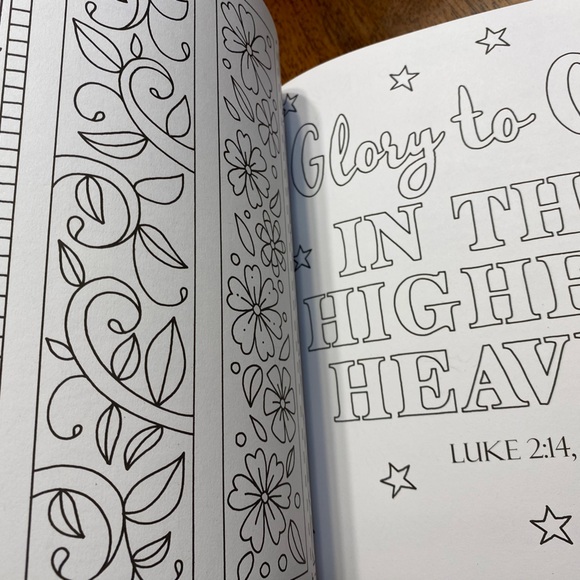 Glory to
IN TH
HIGHE
HEAV
LUKE 2:14,